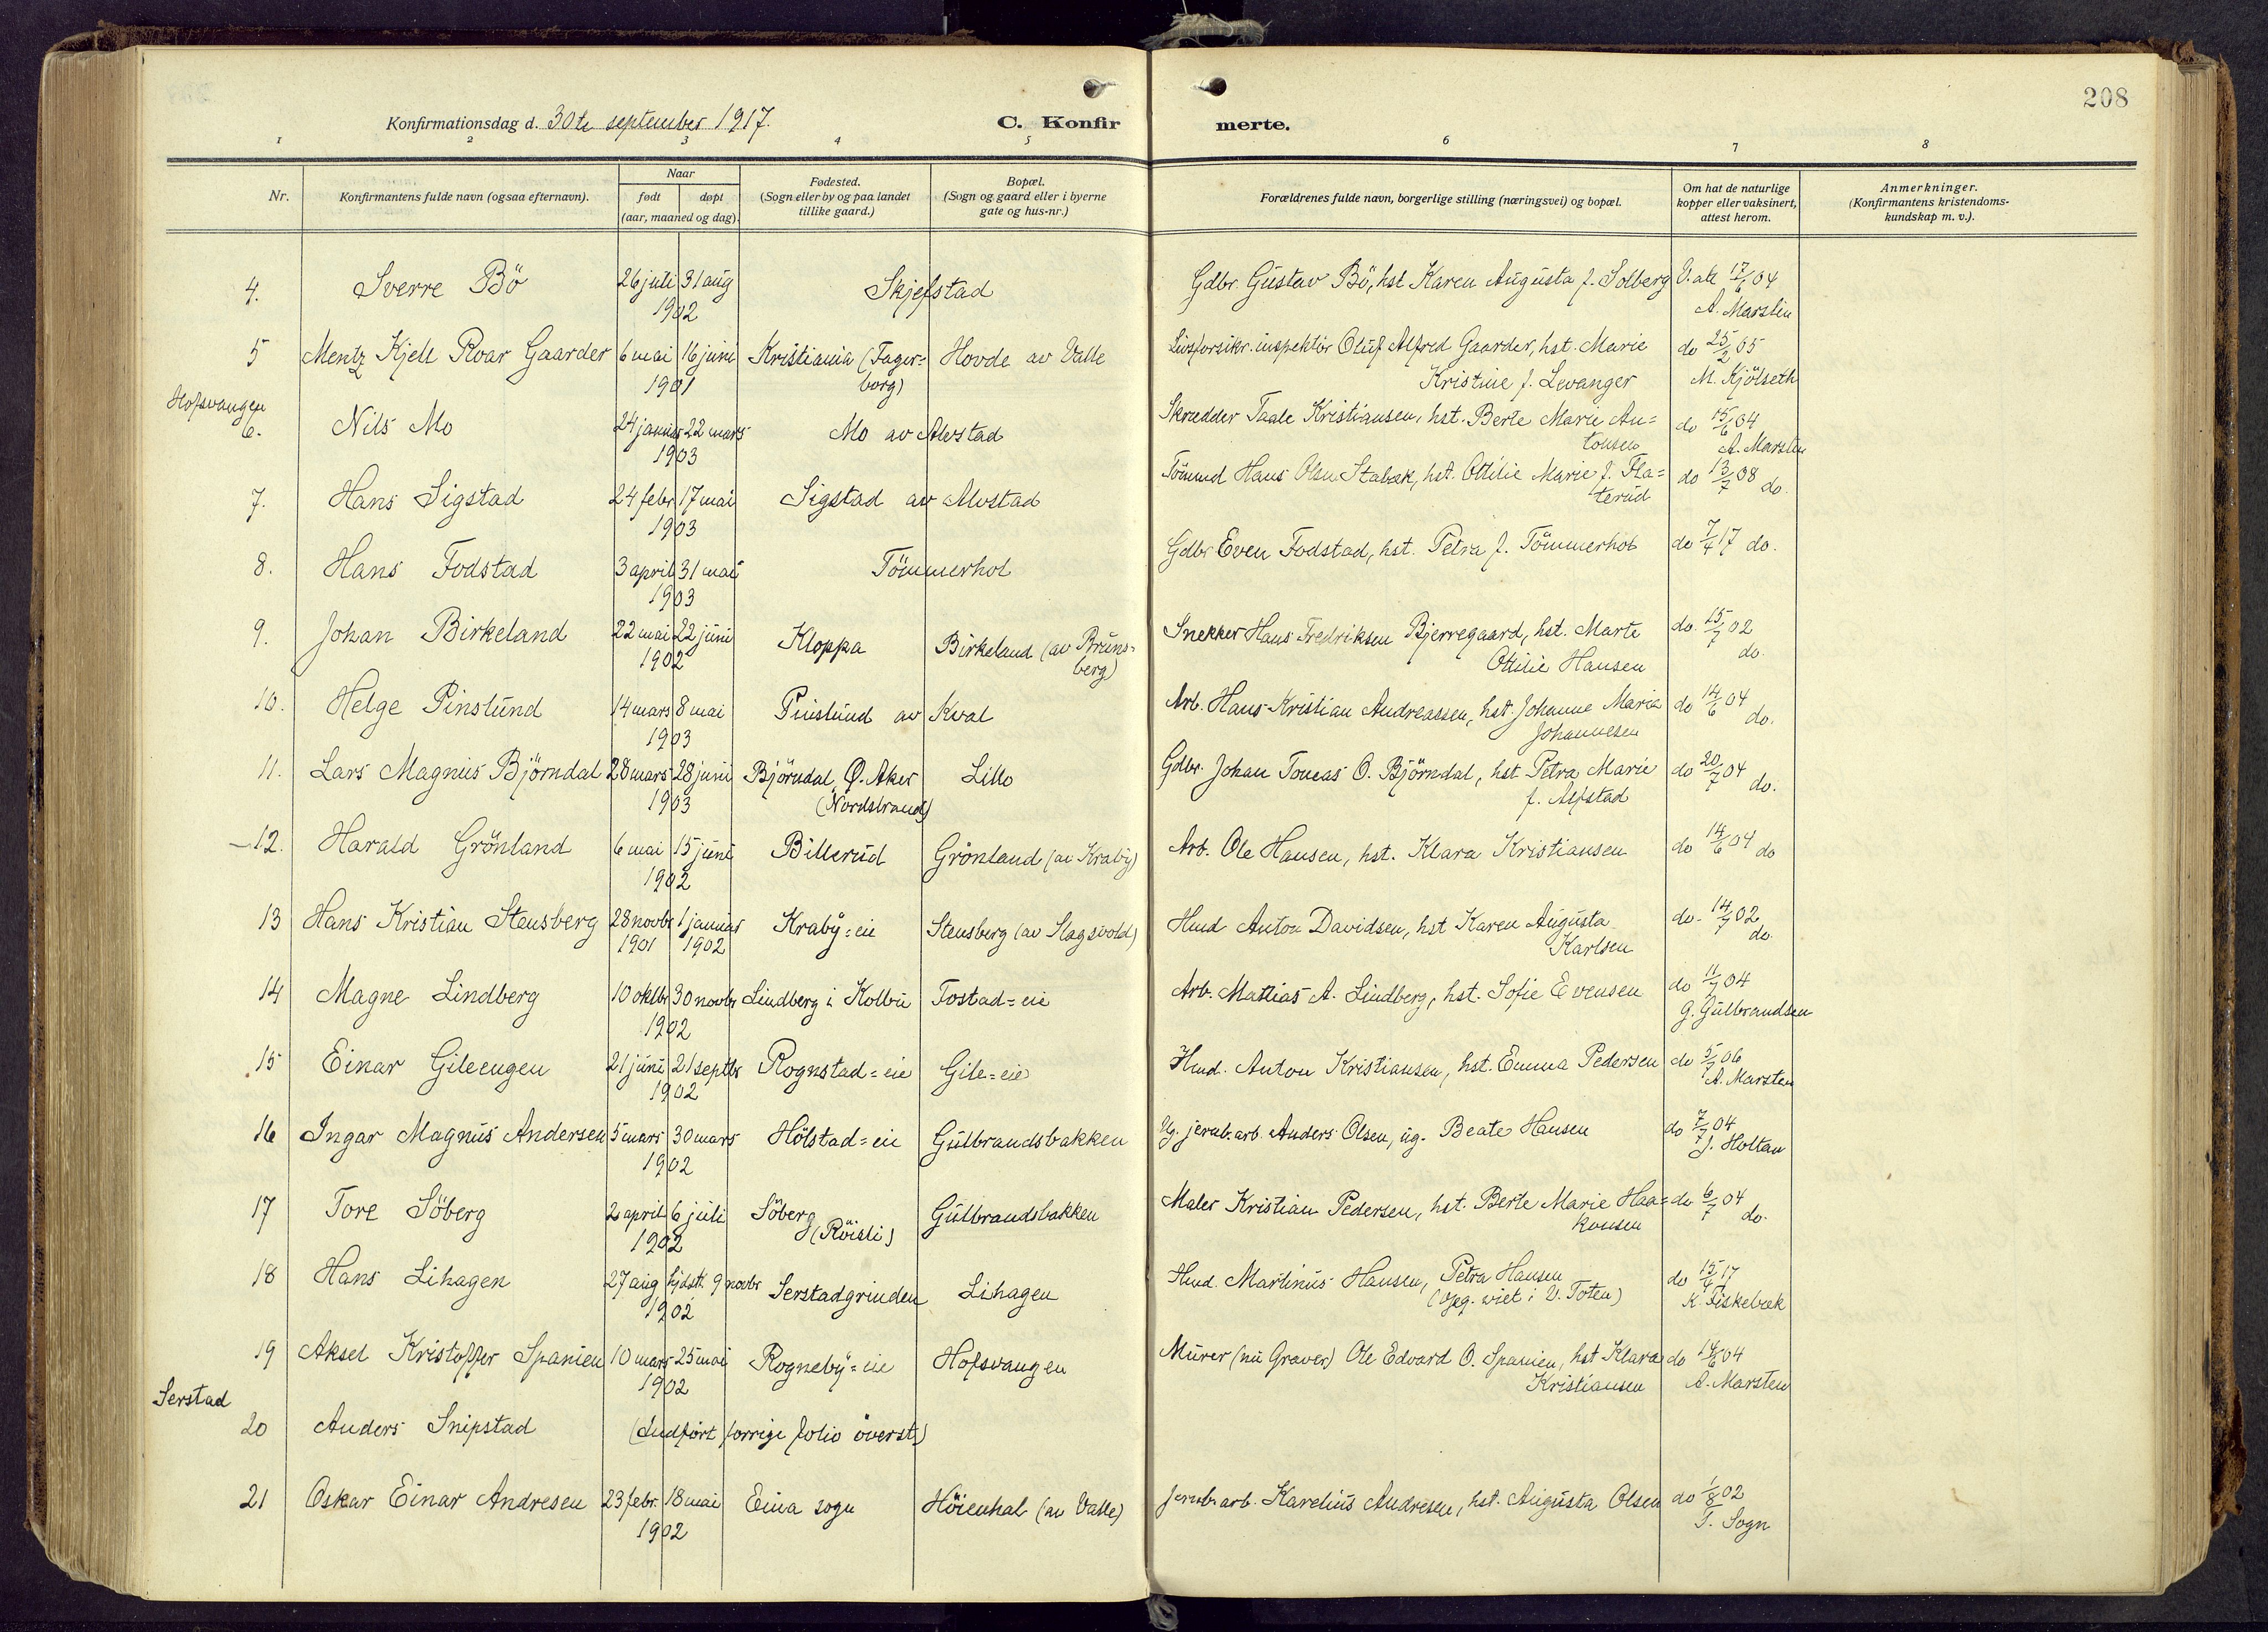 208
Konfirmationsdag d. 30te september 1917.
C. Konfirmerte.
1 2 3 4 5 6 7 8
Nr.
Konfirmantens fulde navn (ogsaa efternavn).
Naar
født døpt
(aar, maaned og dag).
Fødested.
(Sogn eller by og paa landet
tillike gaard.)
Bopæl.
(Sogn og gaard eller i byerne
gate og hus-nr.)
Forældrenes fulde navn, borgerlige stilling (næringsvei) og bopæl.
Om hat de naturlige
kopper eller vaksinert,
attest herom.
Anmerkninger.
(Konfirmantens kristendoms-
kundskap m. v.).
4. Sverre Bö 26 juli 31 aug Skjefstad Gdbr. Gustav Bö, hst Karen Augusta f. Solberg V. att 17/6 04
1902 A. Marsten
5 Mentz Kjell Roar Gaarder 6 mai 16 juni Kristiania (Fager= Hovde av Valle Livsforsikr. inspektör Oluf Alfred Gaarder, hst. Marie do 25/2 05
1901 borg) Kristine f. Levanger M. Kjölseth
Hofsvangen
6. Nils Mo 24 januar 22 mars Mo av Alvstad Skrædder Taale Kristiansen, hst. Berte Marie An= do 15/6 04
1903 tonsen A. Marsten
7. Hans Sigstad 24 febr 17 mai Sigstad av Alvstad Tömmd Hans Olsen Stabæk, hst. Ottilie Marie f. Fla= do 13/7 08 do.
1903 terud
8. Hans Fodstad 3 april 31 mai Tömmerhol Gdbr Even Fodstad, hst. Petra f. Tömmerhol do 7/4 17 do.
1903
9. Johan Birkeland 22 mai 22 juni Kloppa Birkeland (av Bruns= Snekker Hans Fredriksen Bjerregaard, hst. Marte do. 15/7 02
1902 berg) Ottilie Hansen do.
10. Helge Pinslund 14 mars 8 mai Pinslund av Kval Arb. Hans Kristian Andreassen, hst. Johanne Marie do 14/6 04 do.
1903 Johannesen
11. Lars Magnus Björndal 28 mars 28 juni Björndal, Ø. Aker Lillo Gdbr. Johan Tomas O. Björndal, hst Petra Marie do 20/7 04 do.
1903 (Nordstrand) f. Alfstad
12. Harald Grönland 6 mai 15 juni Billerud Grönland (av Kraby) Arb. Ole Hansen, hst. Klara Kristiansen do 14/6 04 do
1902
13 Hans Kristian Stensberg 28 novbr 1 januar Kraby=eie Stensberg (av Slagsvold) Hmd Anton Davidsen, hst Karen Augusta do. 14/7 02
1901 1902 Karlsen do.
14 Magne Lindberg 10 oktbr 30 novbr Lindberg i Kolbu Tostad=eie Arb. Mattias A. Lindberg, hst. Sofie Evensen do 11/7 04
1902 G. Gulbrandsen
15 Einar Gileengen 21 juni 21 septbr Rognstad=eie Gile=eie Hmd. Anton Kristiansen, hst. Emma Pedersen do 5/7 06
1902 A. Marsten
16 Ingar Magnus Andersen 5 mars 30 mars Hölstad=eie Gulbrandsbakken Ug. jernb.arb. Anders Olsen, ug. Beate Hansen do 7/7 04
1902 J. Holtan
17 Tore Söberg 2 april 6 juli Söberg Gulbrandsbakken Maler Kristian Pedersen, hst. Berte Marie Haa= do 6/7 04 do.
1902 (Röisli) konsen
18 Hans Lihagen 27 aug hjdst. 9 novbr Serstadgrinden Lihagen Hmd. Martinus Hansen, Petra Hansen do 15/4 17
1902 (viet i V. Toten) K. Fiskebæk
19 Aksel Kristoffer Spanien 10 mars 25 mai Rogneby=eie Hofsvangen Murer (nu Graver) Ole Edvard O. Spanien, hst Klara do 14/6 04
1902 Kristiansen A. Marsten
Serstad
20 Anders Snipstad (Indfört forrige folio överst)
21 Oskar Einar Andresen 23 febr. 18 mai Eina sogn Höienhal (av Valle) Jernb. arb. Karelius Andresen, hst. Augusta Olsen do 1/8 02
1902 T. Sogn